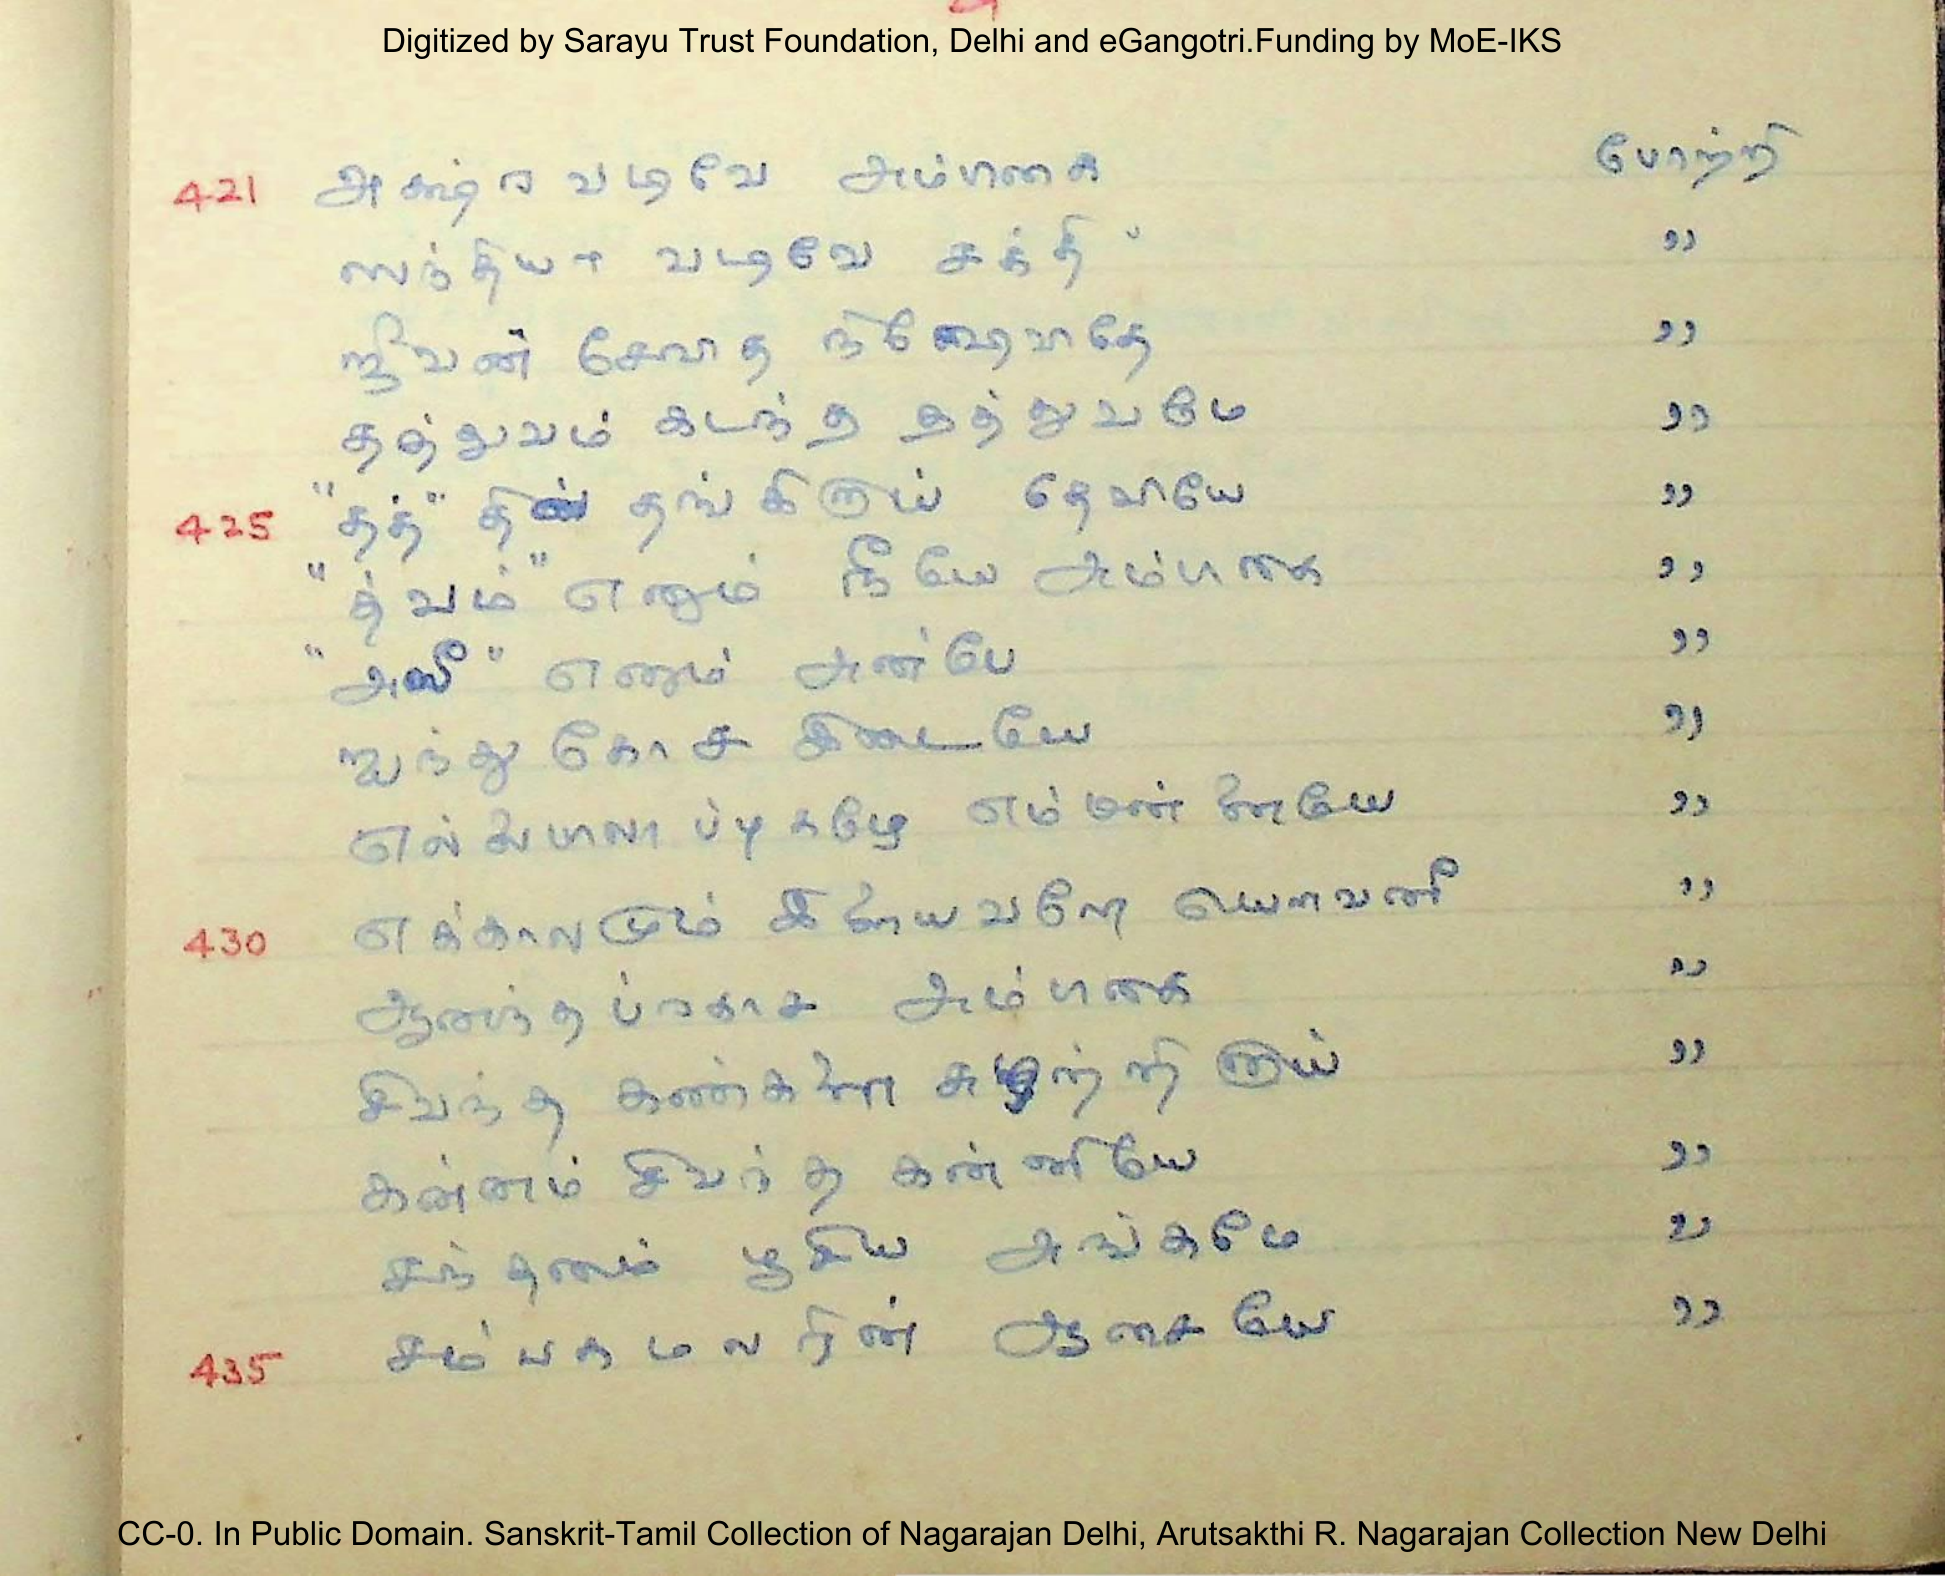 Digitized by Sarayu Trust Foundation, Delhi and eGangotri.Funding by MoE-IKS
421 அக்ஷர வடிவே அம்பிகை போற்றி
ஸந்தியா வடிவே சக்தி "
சிவன் சேவித "
தத்துவம் கடந்த தத்துவமே "
425 "தத்" தில் தங்கிடுய் தேவியே "
"த்வம்" எனும் நீயே அம்பிகை "
"அஸீ" எனும் அன்பே "
ஐந்து கோச இடையே "
எல்லையிலா ப்புகழே எம்மன்னையே "
430 எக்காலமும் இளையவளே யௌவனீ "
ஆனந்தப்ரகாச அம்பிகை "
சிவந்த கண்களை சுழற்றி "
கன்னம் சிவந்த கன்னியே "
சந்தனம் பூசிய அங்கமே "
435 சம்பகமலரின் ஆசையே "
CC-0. In Public Domain. Sanskrit-Tamil Collection of Nagarajan Delhi, Arutsakthi R. Nagarajan Collection New Delhi